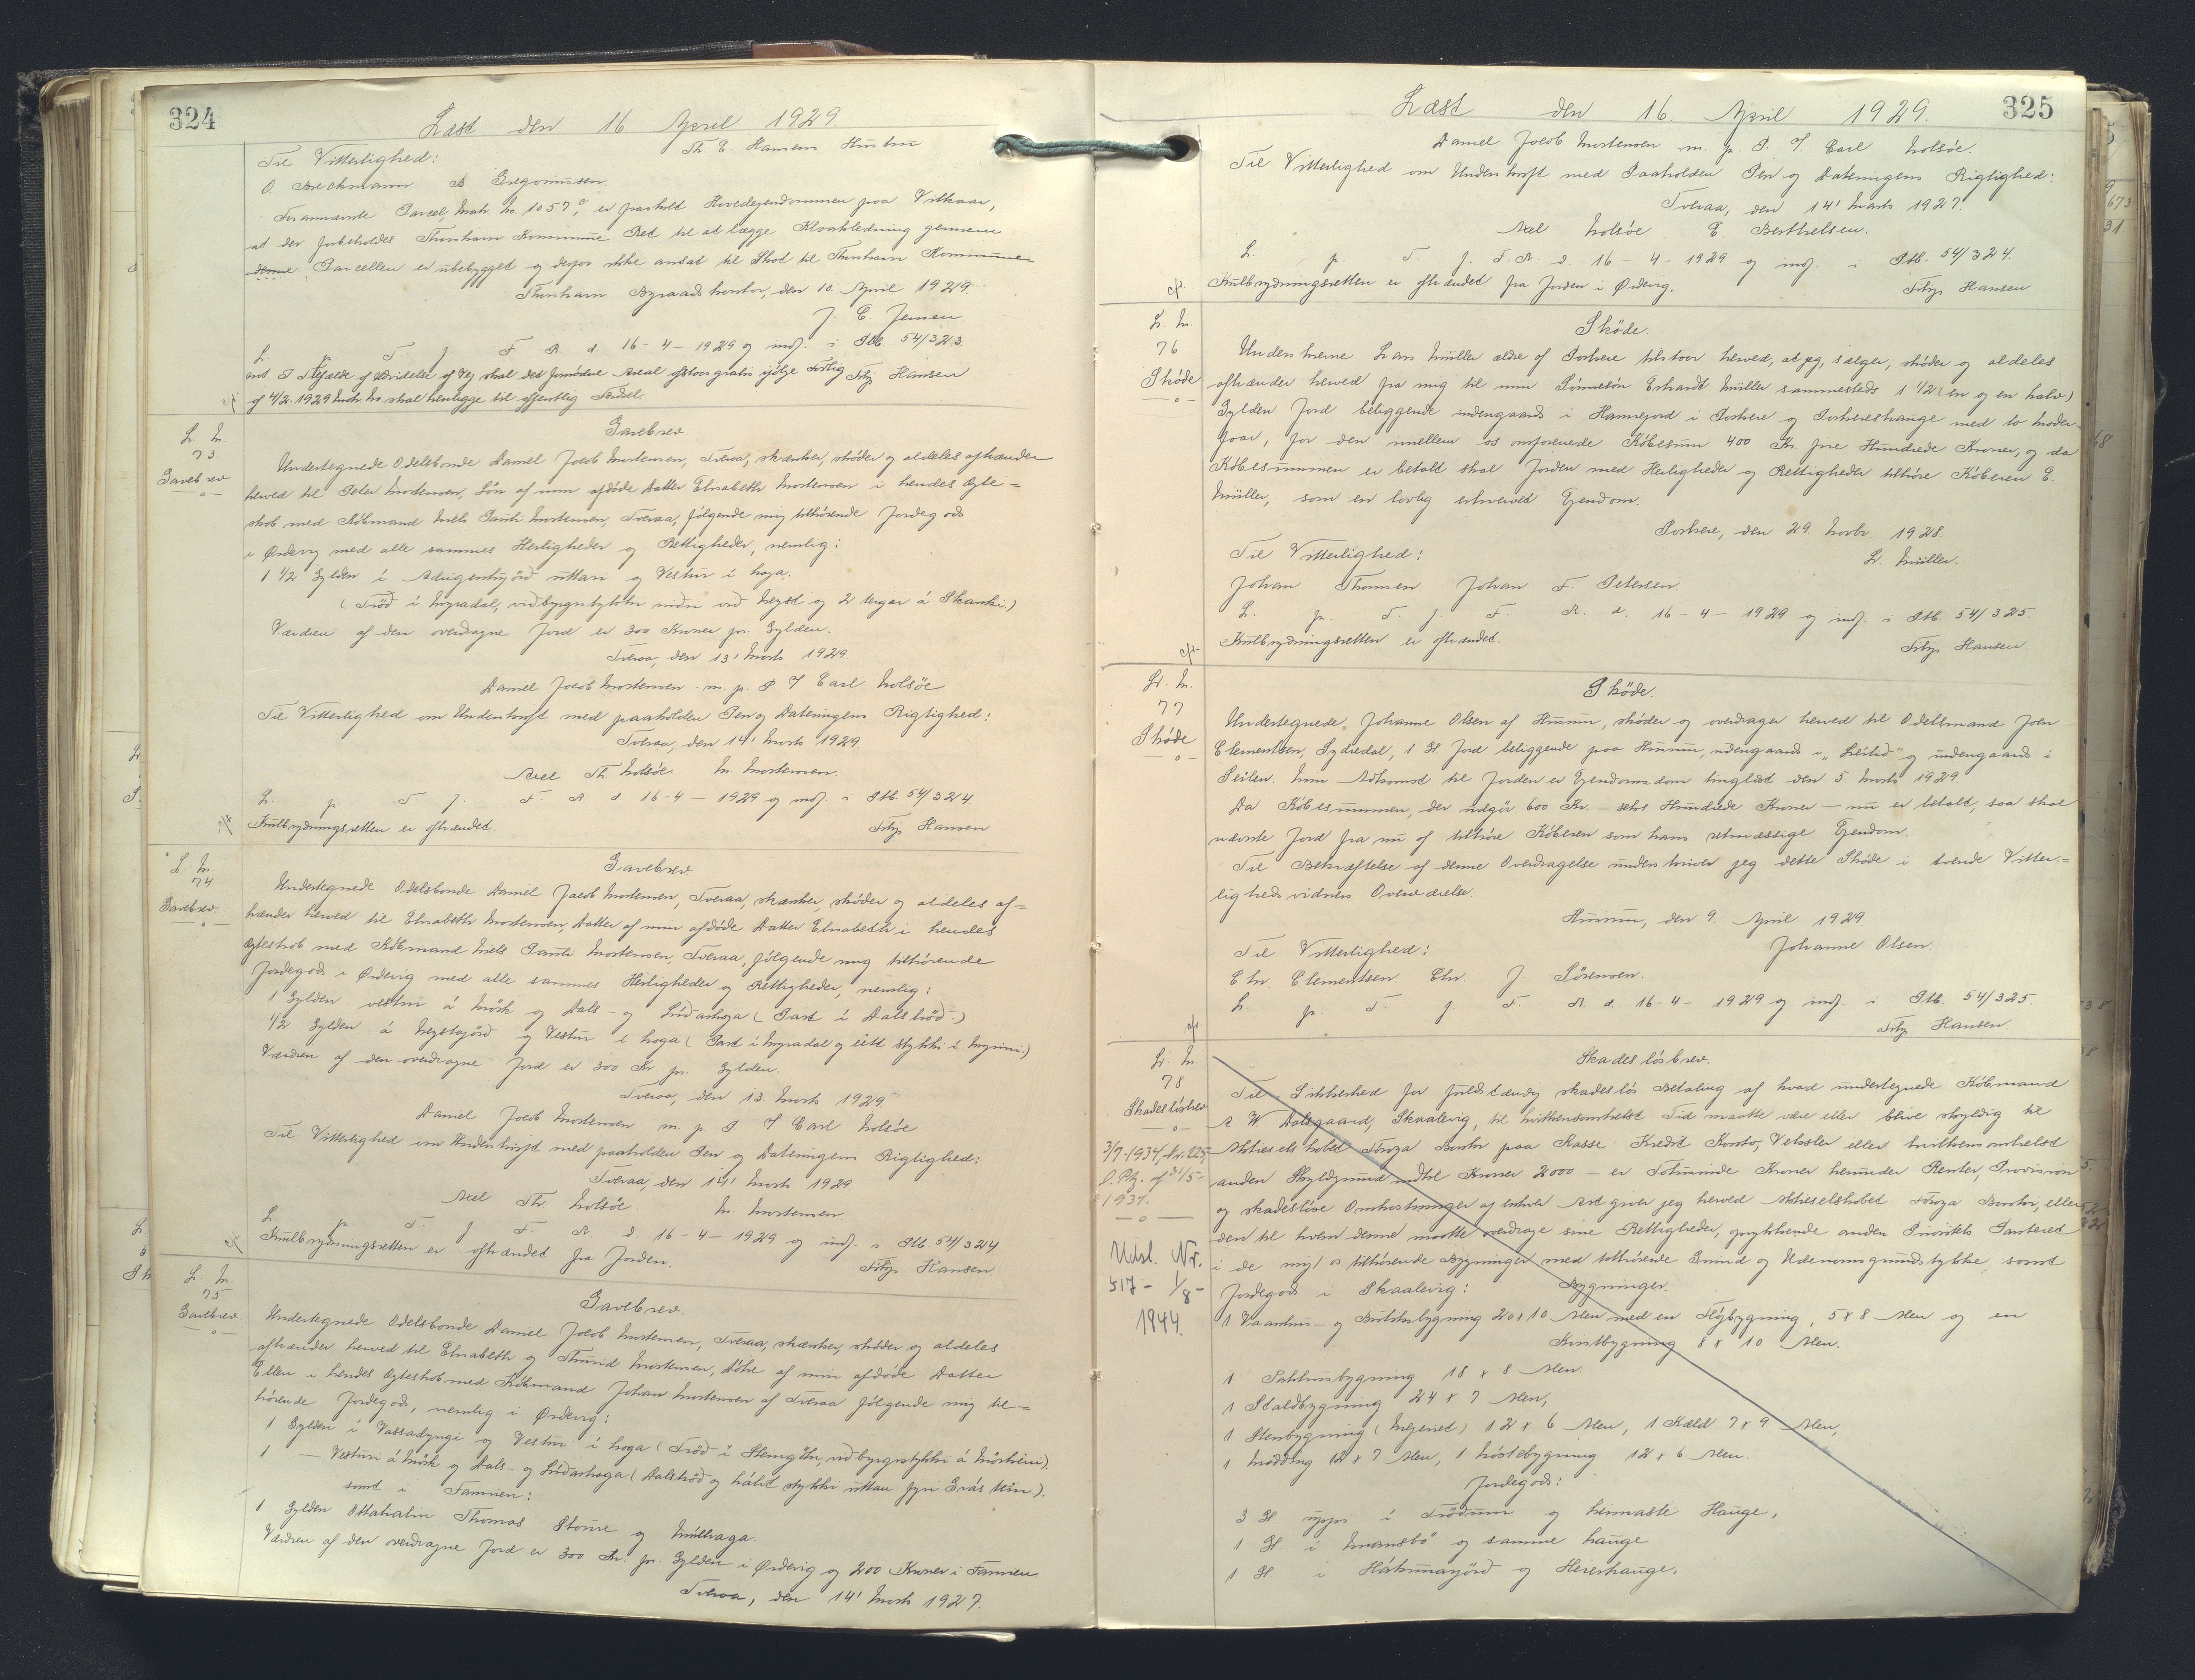 324
Læst den 16 April 1929
Til Vitterlighed: Th. E. Hansens Hustru
O. Brechmann B Gregoriussen.
Forannævnte Parcel, Matr. No. 1057 er frasolgt Hovedejendommen paa Vilkaar,
at der forbeholdes Thorshavn Kommune Ret til at lægge Kloakledning gennem
denne Parcellen er ubebygget og derfor ikke ansat til Skat til Thorshavn Kommune
Thorshavn Byraadskontor, den 10. April 1929.
J. C. Jensen.
L. p. T. f. F. R. d. 16-4-1929 og indf. i Skb. 54/323.
Tilfælde af Udvidelse af Vej skal det fornødne Areal afstaas gratis ifølge
Fritjz Hansen
af 4/2. 1929 Matr. No skal henligge til offentlig Færdsel.
L. N.
73
Gavebrev
Gavebrev.
Undertegnede Odelsbonde Daniel Jacob Mortensen, Tveraa, skænker, skøder og aldeles afhænder
herved til Peter Mortensen, Søn af min afdøde Datter Elisabeth Mortensen i hendes Ægte=
skab med Købmand Niels Pauli Mortensen, Tveraa, følgende mig tilhørende Jordegods
i Ørdevig med alle sammes Herligheder og Rettigheder, nemlig:
1 1/2 Gylden i Adrigentujörð uttari og Vestur i haga.
(Tröð i Myradal, viðbygistykki niðri við Neyst og 2 tengar á Skanki.)
Værdien af den overdragne Jord er 300 Kroner pr. Gylden.
Tveraa, den 13' Marts 1929.
Daniel Jacob Mortensen m. p. P. T Carl Holsöe
Til Vitterlighed om Underskrift med paaholden Pen og Dateringens Rigtighed:
Tveraa, den 14' Marts 1929
Axel Th. Holsöe. M. Mortensen.
L. p. T. f. F. R. d. 16-4-1929 og indf. i Skb. 54/324.
Kulbrydningsretten er afhændet.
Fritjz Hansen
L. N.
74
Gavebrev.
Gavebrev
Undertegnede Odelsbonde Daniel Jacob Mortensen, Tveraa, skænker, skøder og aldeles af=
hænder herved til Elisabeth Mortensen, Datter af min afdøde Datter Elisabeth i hendes
Ægteskab med Købmand Niels Pauli Mortensen, Tveraa, følgende mig tilhørende
Jordegods i Ørdevig med alle sammes Herligheder og Rettigheder, nemlig:
1 Gylden vestur á Mörk og Dals- og Liðarhaga (Part i Dalströð.)
1/2 Gylden á Neystajörð og Vestur i haga (Part i Myradal og eitt stykki i Myrini.)
Værdien af den overdragne Jord er 300 Kr pr. Gylden.
Tveraa, den 13. Marts 1929.
Daniel Jacob Mortensen m. p. P. T Carl Holsöe
Til Vitterlighed om Underskrift med paaholden Pen og Dateringens Rigtighed:
Tveraa, den 14' Marts 1929
Axel Th Holsöe. M. Mortensen.
L. p. T. f. F. R. d 16-4-1929 og indf. i Skb. 54/324
Kulbrydningsretten er afhændet fra Jorden.
Fritjz Hansen
L. N.
75
Gavebrev.
Gavebrev.
Undertegnede Odelsbonde Daniel Jacob Mortensen, Tveraa, skænker, skøder og aldeles
afhænder herved til Elisabeth og Thurid Mortensen, Døtre af min afdøde Datter
Ellen i hendes Ægteskab med Købmand Johan Mortensen af Tveraa følgende mig til=
hørende Jordegods, nemlig i Ørdevig:
1 Gylden i Vassadyngi og Vestur i haga (Tröð i Steingötu, viðbygistykki á Mörkini).
1 — Vestur á Mörk og Dals- og Liðarhaga (Dalströð og hálvt stykki uttan fyri Grás tein).
samt i Famien:
1 Gylden Thomas Stove og
Værdien af den overdragne Jord er 300 Kr. pr. Gylden i Ørdevig og 200 Kroner i Famien
Tveraa, den 14' Marts 1927.
325
Læst den 16 April 1929.
Daniel Jacob Mortensen m. p. P. T. Carl Holsöe.
Til Vitterlighed om Underskrift med Paaholden Pen og Dateringens Rigtighed:
Tveraa, den 14' Marts 1927.
Axel Holsöe E Berthelsen.
L. p. T. f. F. R. d. 16-4-1929 og indf. i Skb. 54/324.
Kulbrydningsretten er afhændet fra Jorden i Ørdevig.
Fritjz Hansen
L. N.
76
Skøde
Skøde.
Underskrevne Lars Müller ældre af Porkere tilstaar herved, at jeg, sælger, skøder og aldeles
afhænder herved fra mig til min Sønnesøn Erhardt Müller sammesteds 1 1/2 (en og en halv)
Gylden Jord beliggende indengaards i Hannejord i Porkere og Porkereshauge med to Moder
faar, for den imellem os omforenede Købesum 400 Kr. fire Hundrede Kroner, og da
Købesummen er betalt skal Jorden med Herligheder og Rettigheder tilhøre Køberen E.
Müller, som en lovlig erhvervet Ejendom.
Porkere, den 29. Novbr. 1928.
Til Vitterlighed:
L. Müller.
Johan Thomsen Johan F. Petersen
L. p. T. f. F. R. d. 16-4-1929 og indf. i Skb. 54/325.
Kulbrydningsretten er afhændet.
Fritjz Hansen
L. N.
77
Skøde
Skøde.
Undertegnede, Johanne Olsen af Husum, skøder og overdrager herved til Odelsmand Joen
Clementsen, Sydredal, 1 Gl Jord beliggende paa Husum, udengaards i og indengaards i
Seilen. Min Adkomst til Jorden er Ejendomsdom tinglæst den 5 Marts 1929
Da Købesummen, der udgør 600 Kr. - seks Hundrede Kroner - nu er betalt, saa skal
nævnte Jord fra nu af tilhøre Køberen som hans retmæssige Ejendom.
Til Bekræftelse af denne Overdragelse underskriver jeg dette Skøde i tvende Vitter=
lighedsvidners Overværelse.
Husum, den 9. April 1929.
Til Vitterlighed:
Johanne Olsen.
Chr Clementsen Chr. J. Sörensen.
L. p. T. f. F. R. d. 16-4-1929 og indf. i Skb. 54/325.
Fritjz Hansen
L. N.
78
Skadesløsbrev
3/7-1934, Nr. 225
1937.
Udsl. Nr.
517 - 1/8 -
1944.
Skadesløsbrev.
Til Sikkerhed for fuldstændig skadesløs Betaling af hvad undertegnede Købmand
A W Dalsgaard, Skaalevig, til hvilkensomhelst Tid maatte være eller blive skyldig til
Aktieselskabet Föroya Banki paa Kasse Kredit Konto, Veksler eller hvilkensomhelst
anden Skyldgrund indtil Kroner 2000 - er Totusinde Kroner herunder Renter, Provision
og skadesløse Omkostninger af enhver Art giver jeg herved Aktieselskabet Föroya Banki, eller
den til hvem denne maatte overdrage sine Rettigheder, oprykkende anden Prioritets Panteret
i de mig tilhørende Bygninger med tilhørende Grund og Udenomsgrundstykke samt
Jordegods i Skaalevig: Bygninger.
1 Vaanhus- og Butiksbygning 20x10 Alen med en Højbygning, 5x8 Alen og en
Kvistbygning 8 x 10 Alen.
1 Pakhusbygning 18 x 8 Alen.
1 Staldbygning 24 x 7 Alen,
1 Stenbygning (Mejeriet) 12 x 6 Alen, 1 Kæld 7x9 Alen,
1 Mødding 12 x 7 Alen, 1 Høstebygning 12 x 6 Alen.
Jordegods:
3 Gl uppi i Tröðum og heimaste Hauge,
1 Gl. i Mansbö og samme hauge
1 Gl i Hákunajörð og Heiershauge.